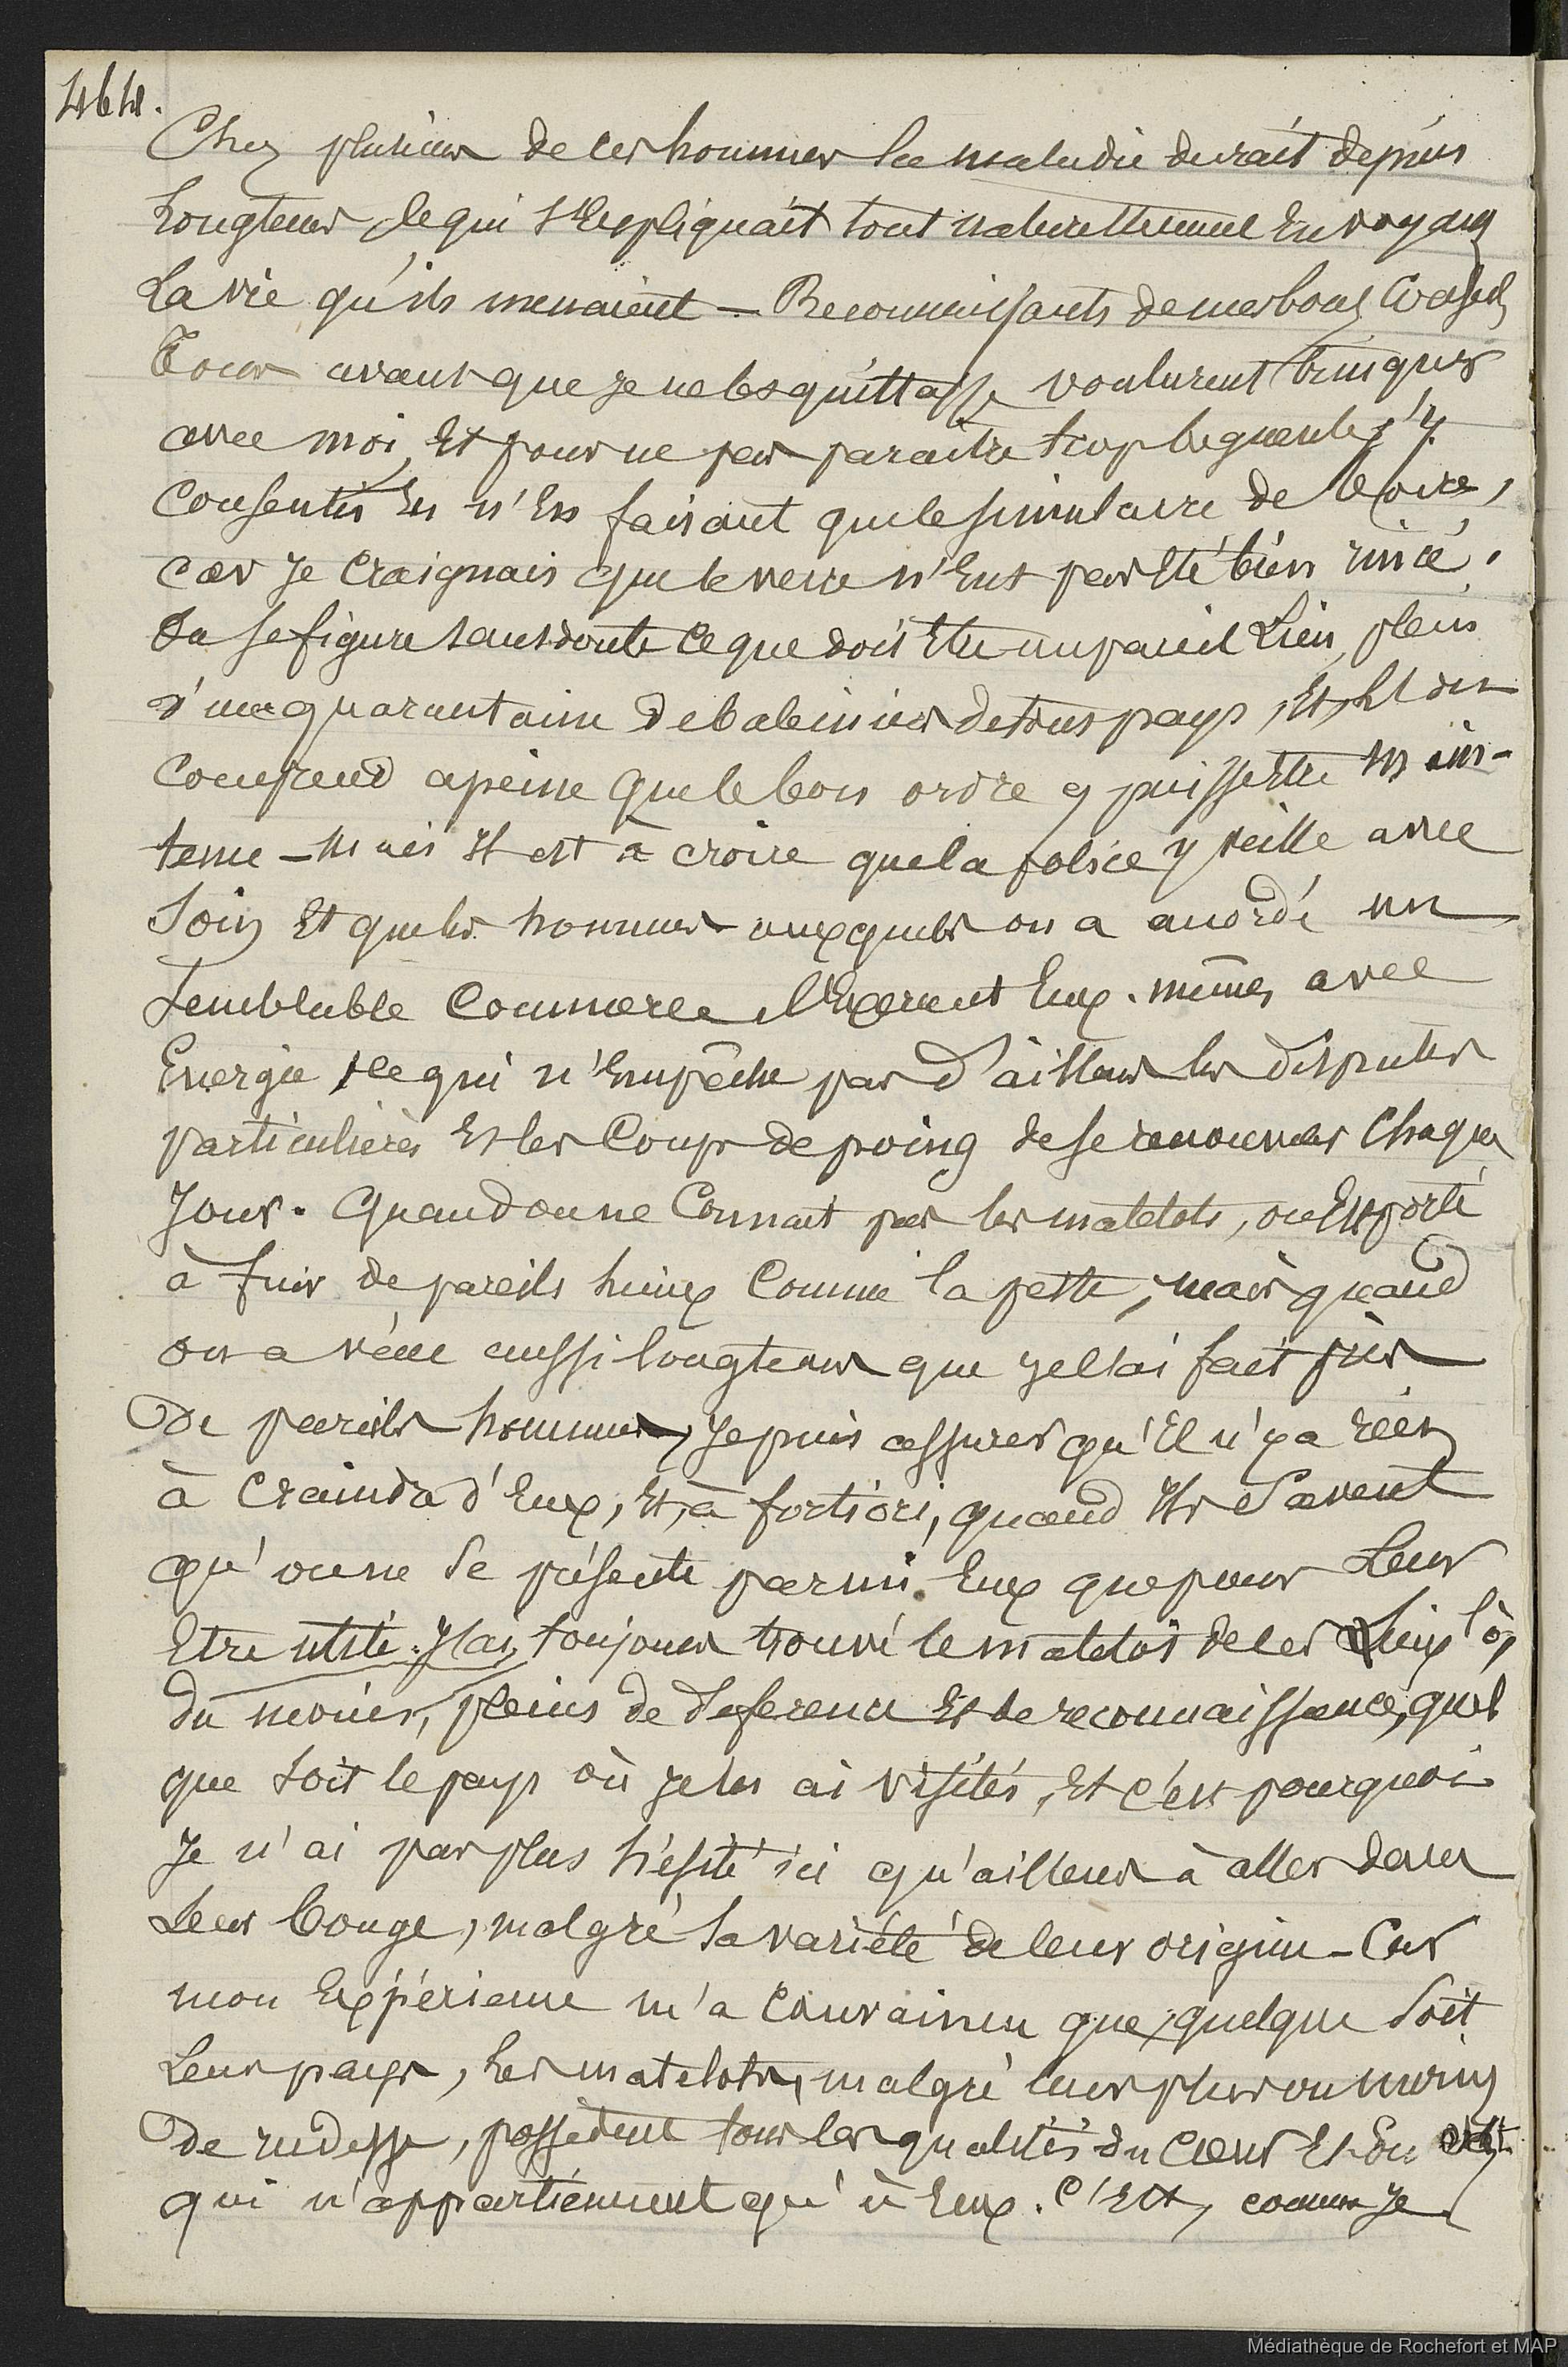 464.
Chez plusieurs de ces hommes la maladie durait depuis
Longtems, Ce qui s'Expliquait tout naturellement En voyant
La vie qu'ils menaient — Reconnaissants de mes bons Conseils
Tous avant que je ne les quittasse voulurent trinquer
avec moi, Et pour ne pas paraitre trop begueule j'y
Consentis En n'En faisant que le simulacre de boire,
car Je Craignais que le verre n'Eut pas Eté bien rincé.
On se figure sans doute Ce que doit Etre un pareil Lieu, plein
d'une quarantaine de baleiniers de tous pays, Et, l'on
Comprend apeine que le bon ordre y puisse Etre main-
tenu — Mais Il est à croire que la police y veille avec
Soin Et que les hommes auxquels on a accordé un
Semblable Commerce l'Exercent Eux-mêmes avec
Energie, Ce qui n'Empêche pas d'ailleurs les disputes
particulières Et les Coups de poing de se renouveler Chaque
Jour. Quand on ne Connait pas les matelots, on Est porté
à fuir de pareils lieux Comme la peste, mais quand
on a vécu aussi longtems que je l'ai fait près
De pareils hommes, Je puis assurer qu'Il n'y a rien
à Craindre d'Eux, Et, à fortiori, quand Ils Savent
qu'on ne Se présente parmi Eux que pour Leur
Etre utile. J'ai toujours trouvé le matelot de ces Lieux là,
du moins, pleins de deference Et de reconnaissance, quel
que soit le pays où je les ai visités, Et c'est pourquoi
Je n'ai pas plus hésité ici qu'ailleurs à aller dans
Leur bouge, malgré la variété de leur origine — Car
mon Expérience m'a Convaincu que, quelque Soit
Leur pays, Les matelots, malgré leur plus ou moins
De rudesse, possèdent tous les qualités du Coeur Et Du
qui n'appartiennent qu'à Eux. C'Est, comme Je
Médiathèque de Rochefort et MAP